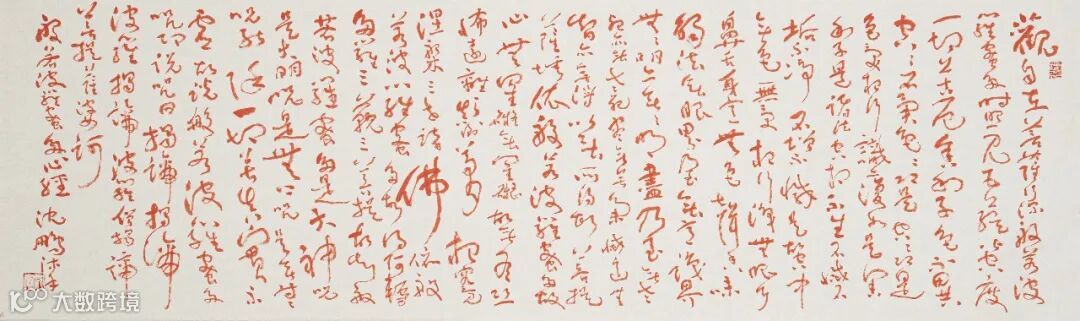 觀自在菩薩行深般若波
羅蜜多時照見五蘊皆空度
一切苦厄舍利子色不異
空空不異色色即是空空即是
色受想行識亦復如是舍
利子是諸法空相不生不滅不
垢不淨不增不減是故空中
無色無受想行識無眼耳
鼻舌身意無色聲香味
觸法無眼界乃至無意識界
無無明亦無無明盡乃至無老
死亦無老死盡無苦集滅道無
智亦無得以無所得故菩提
薩埵依般若波羅蜜多故
心無罣礙無罣礙故無有恐
怖遠離顛倒夢想究竟
涅槃三世諸佛依般
若波羅蜜多故得阿耨
多羅三藐三菩提故知般
若波羅蜜多是大神咒
是大明咒是無上咒是無等等
咒能除一切苦真實不
虛故說般若波羅蜜多
咒即說咒曰揭諦揭諦
波羅揭諦波羅僧揭諦
菩提薩婆訶
般若波羅蜜多心經 沈鵬
大数跨境